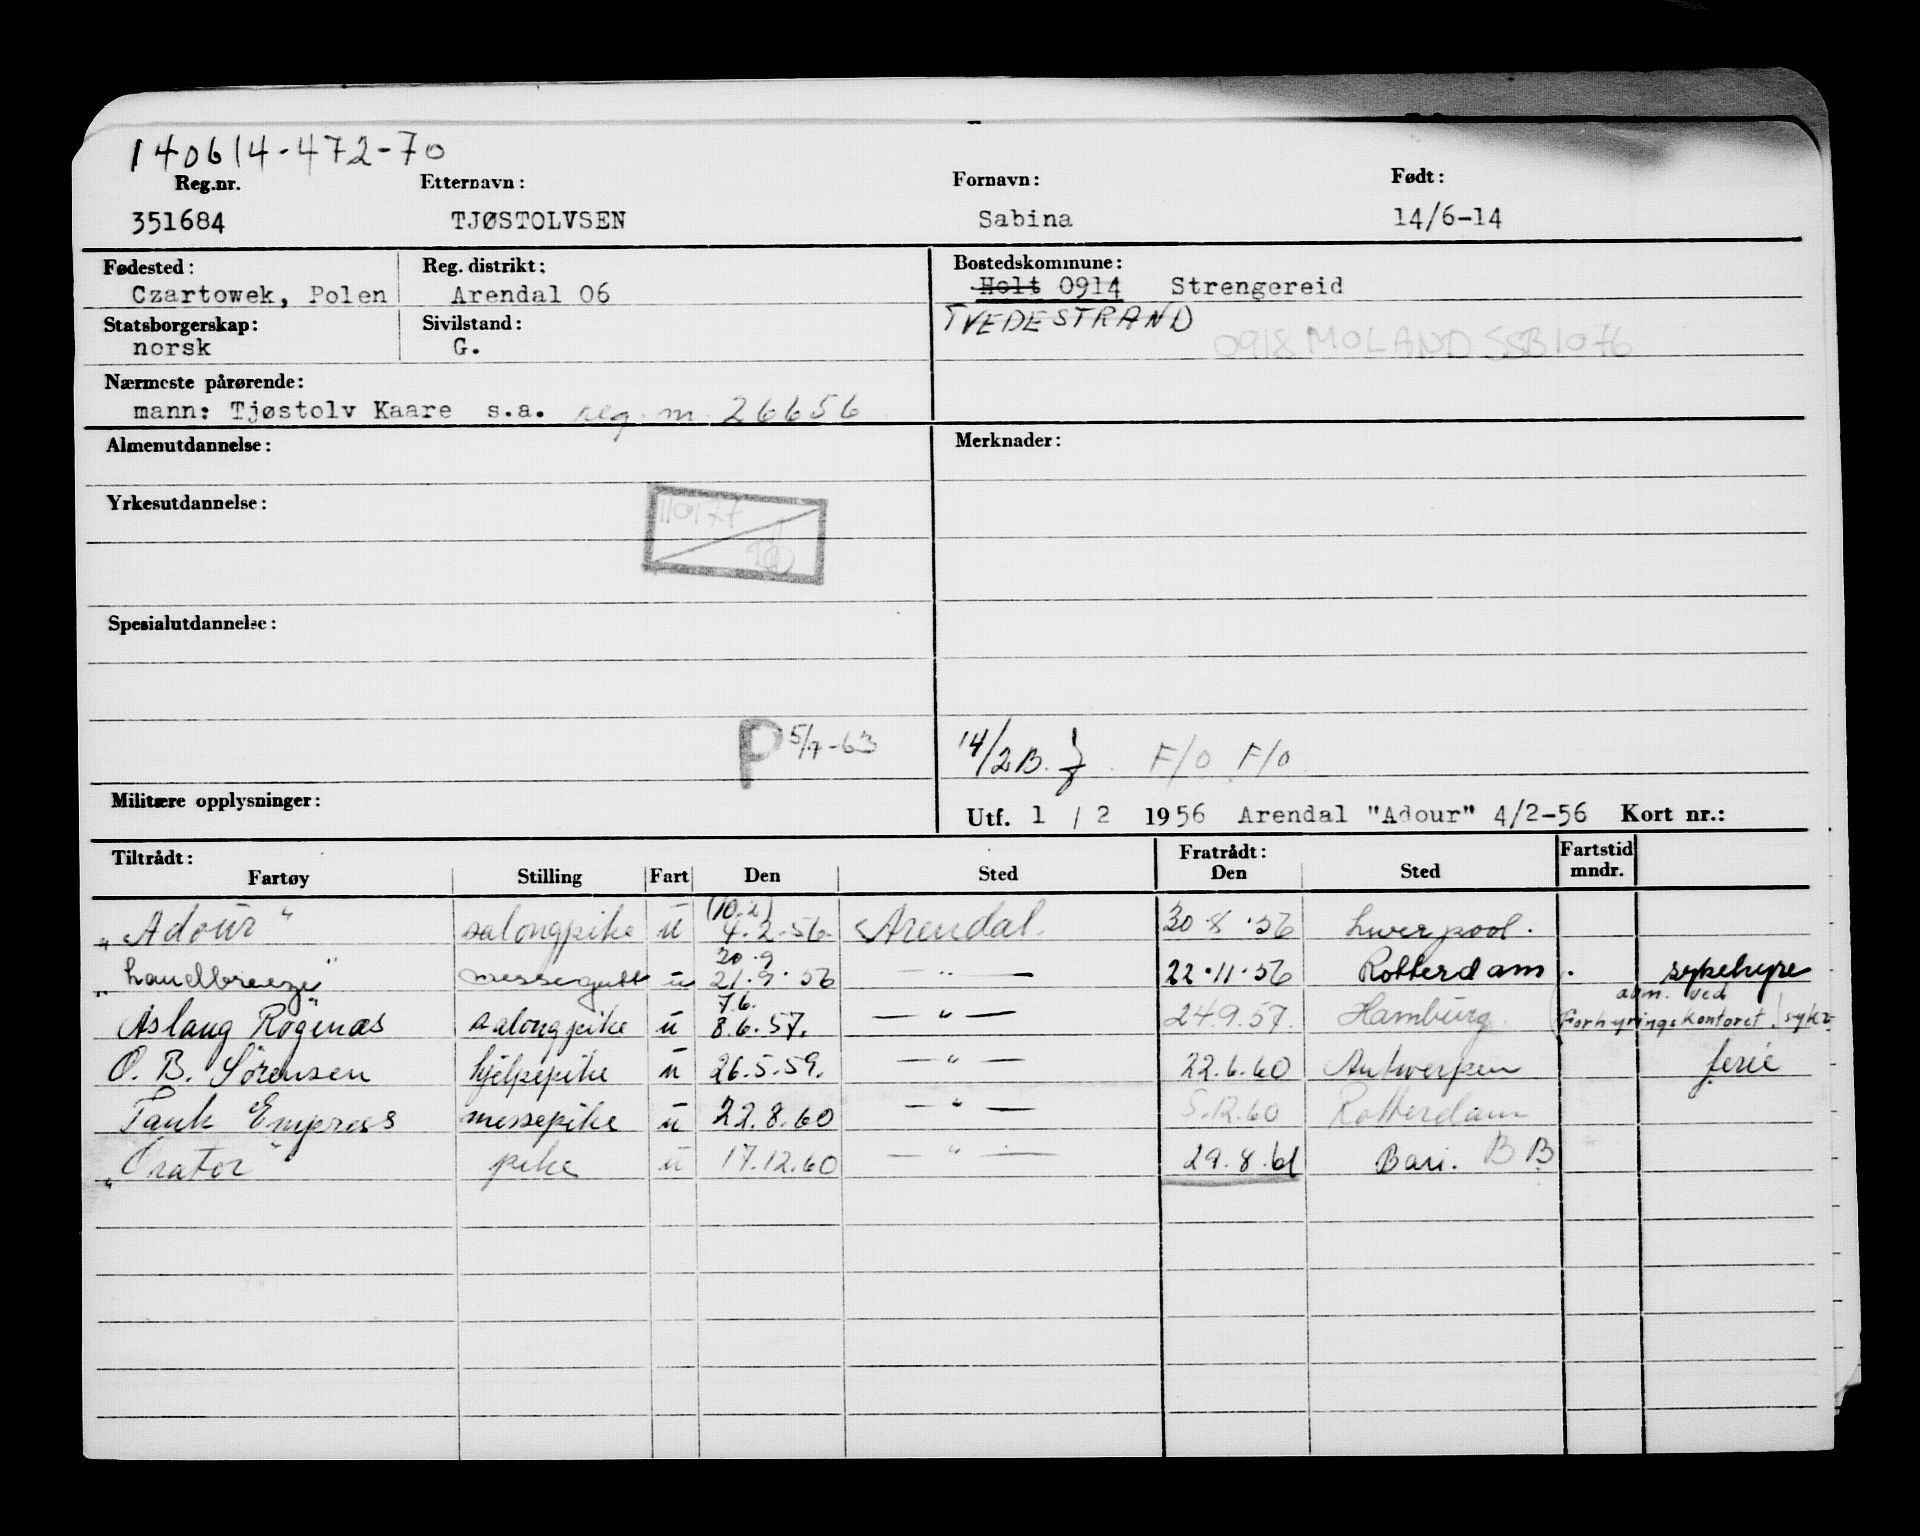 140614-472-70
Reg.nr. Etternavn: Fornavn: Født:
351684 TJØSTOLVSEN Sabina 14/6-14
Fødested: Reg. distrikt: Bostedskommune:
Czartowek, Polen Arendal 06 Holt 0914 Strengereid
Statsborgerskap: Sivilstand: TVEDESTRAND
norsk G. 0918 MOLAND SSB1076
Nærmeste pårørende:
mann: Tjøstolv Kaare s.a. reg. nr. 26656
Almenutdannelse: Merknader:
Yrkesutdannelse:
110177
Spesialutdannelse:
P 5/7-63 14/2 B. F/O F/O
Militære opplysninger: Utf. 1 / 2 1956 Arendal "Adour" 4/2-56 Kort nr.:
Tiltrådt: Fratrådt: Fartstid
Fartøy Stilling Fart Den Sted Den Sted mndr.
(10.2)
"Adour" salongpike u 4.2.56 Arendal. 30.8.56 Liverpool.
20.9
"Landbreeze" messegutt u 21.9.56 — " — 22.11.56 Rotterdam. sykehyre
7.6. avm. ved
Aslaug Rogenæs salongpike u 8.6.57. — " — 24.9.57. Hamburg. Forhyringskontoret, syk
O. B. Sørensen hjelpepike u 26.5.59. — " — 22.6.60 Antwerpen ferie
Tank Empress messepike u 22.8.60 — " — 5.12.60 Rotterdam
"Orator" pike u 17.12.60 — " — 29.8.61 Bari. B B